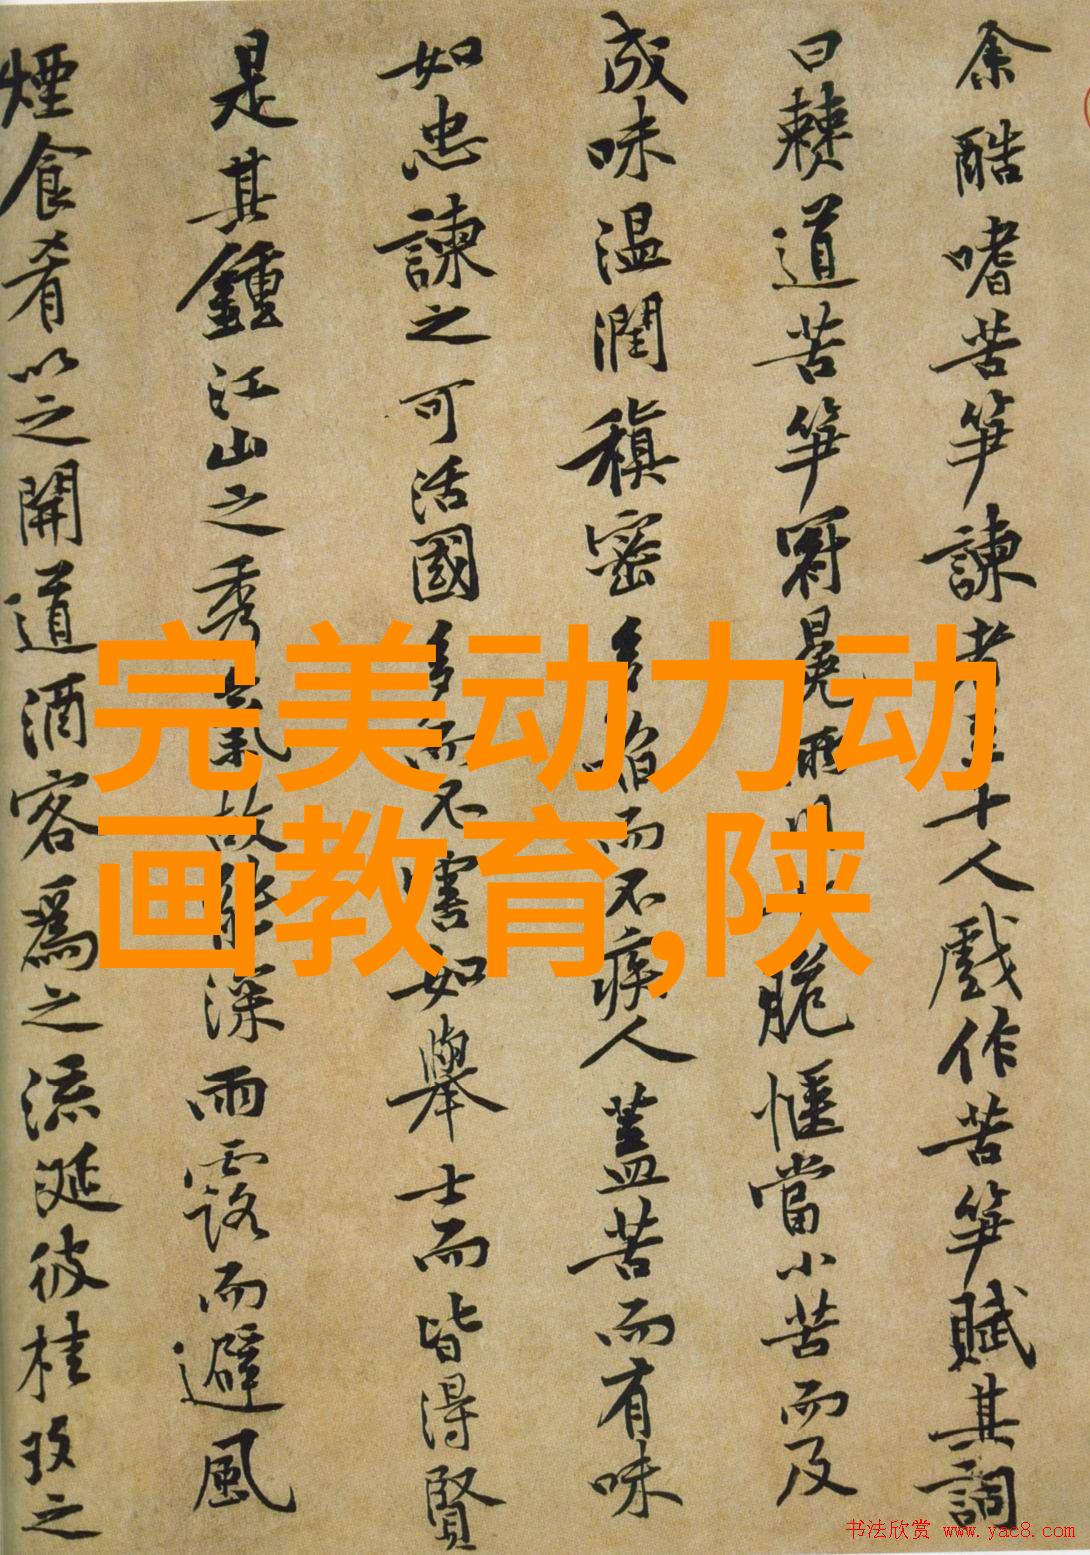 余酷嗜苦笋諫者十人戲作苦笋賦其詞
曰僰道苦笋冠冕兩川脆愜當小苦而及
成味温潤稹密多啗而不疾人蓋苦而有味
如忠諫之可活國多而不害如舉士而皆得賢
是其鍾江山之秀氣故能深雨露而避風
煙食肴以之開道酒客爲之流涎彼桂玫之
完美动力动
画教育,陕
书法欣赏 www.yac8.com